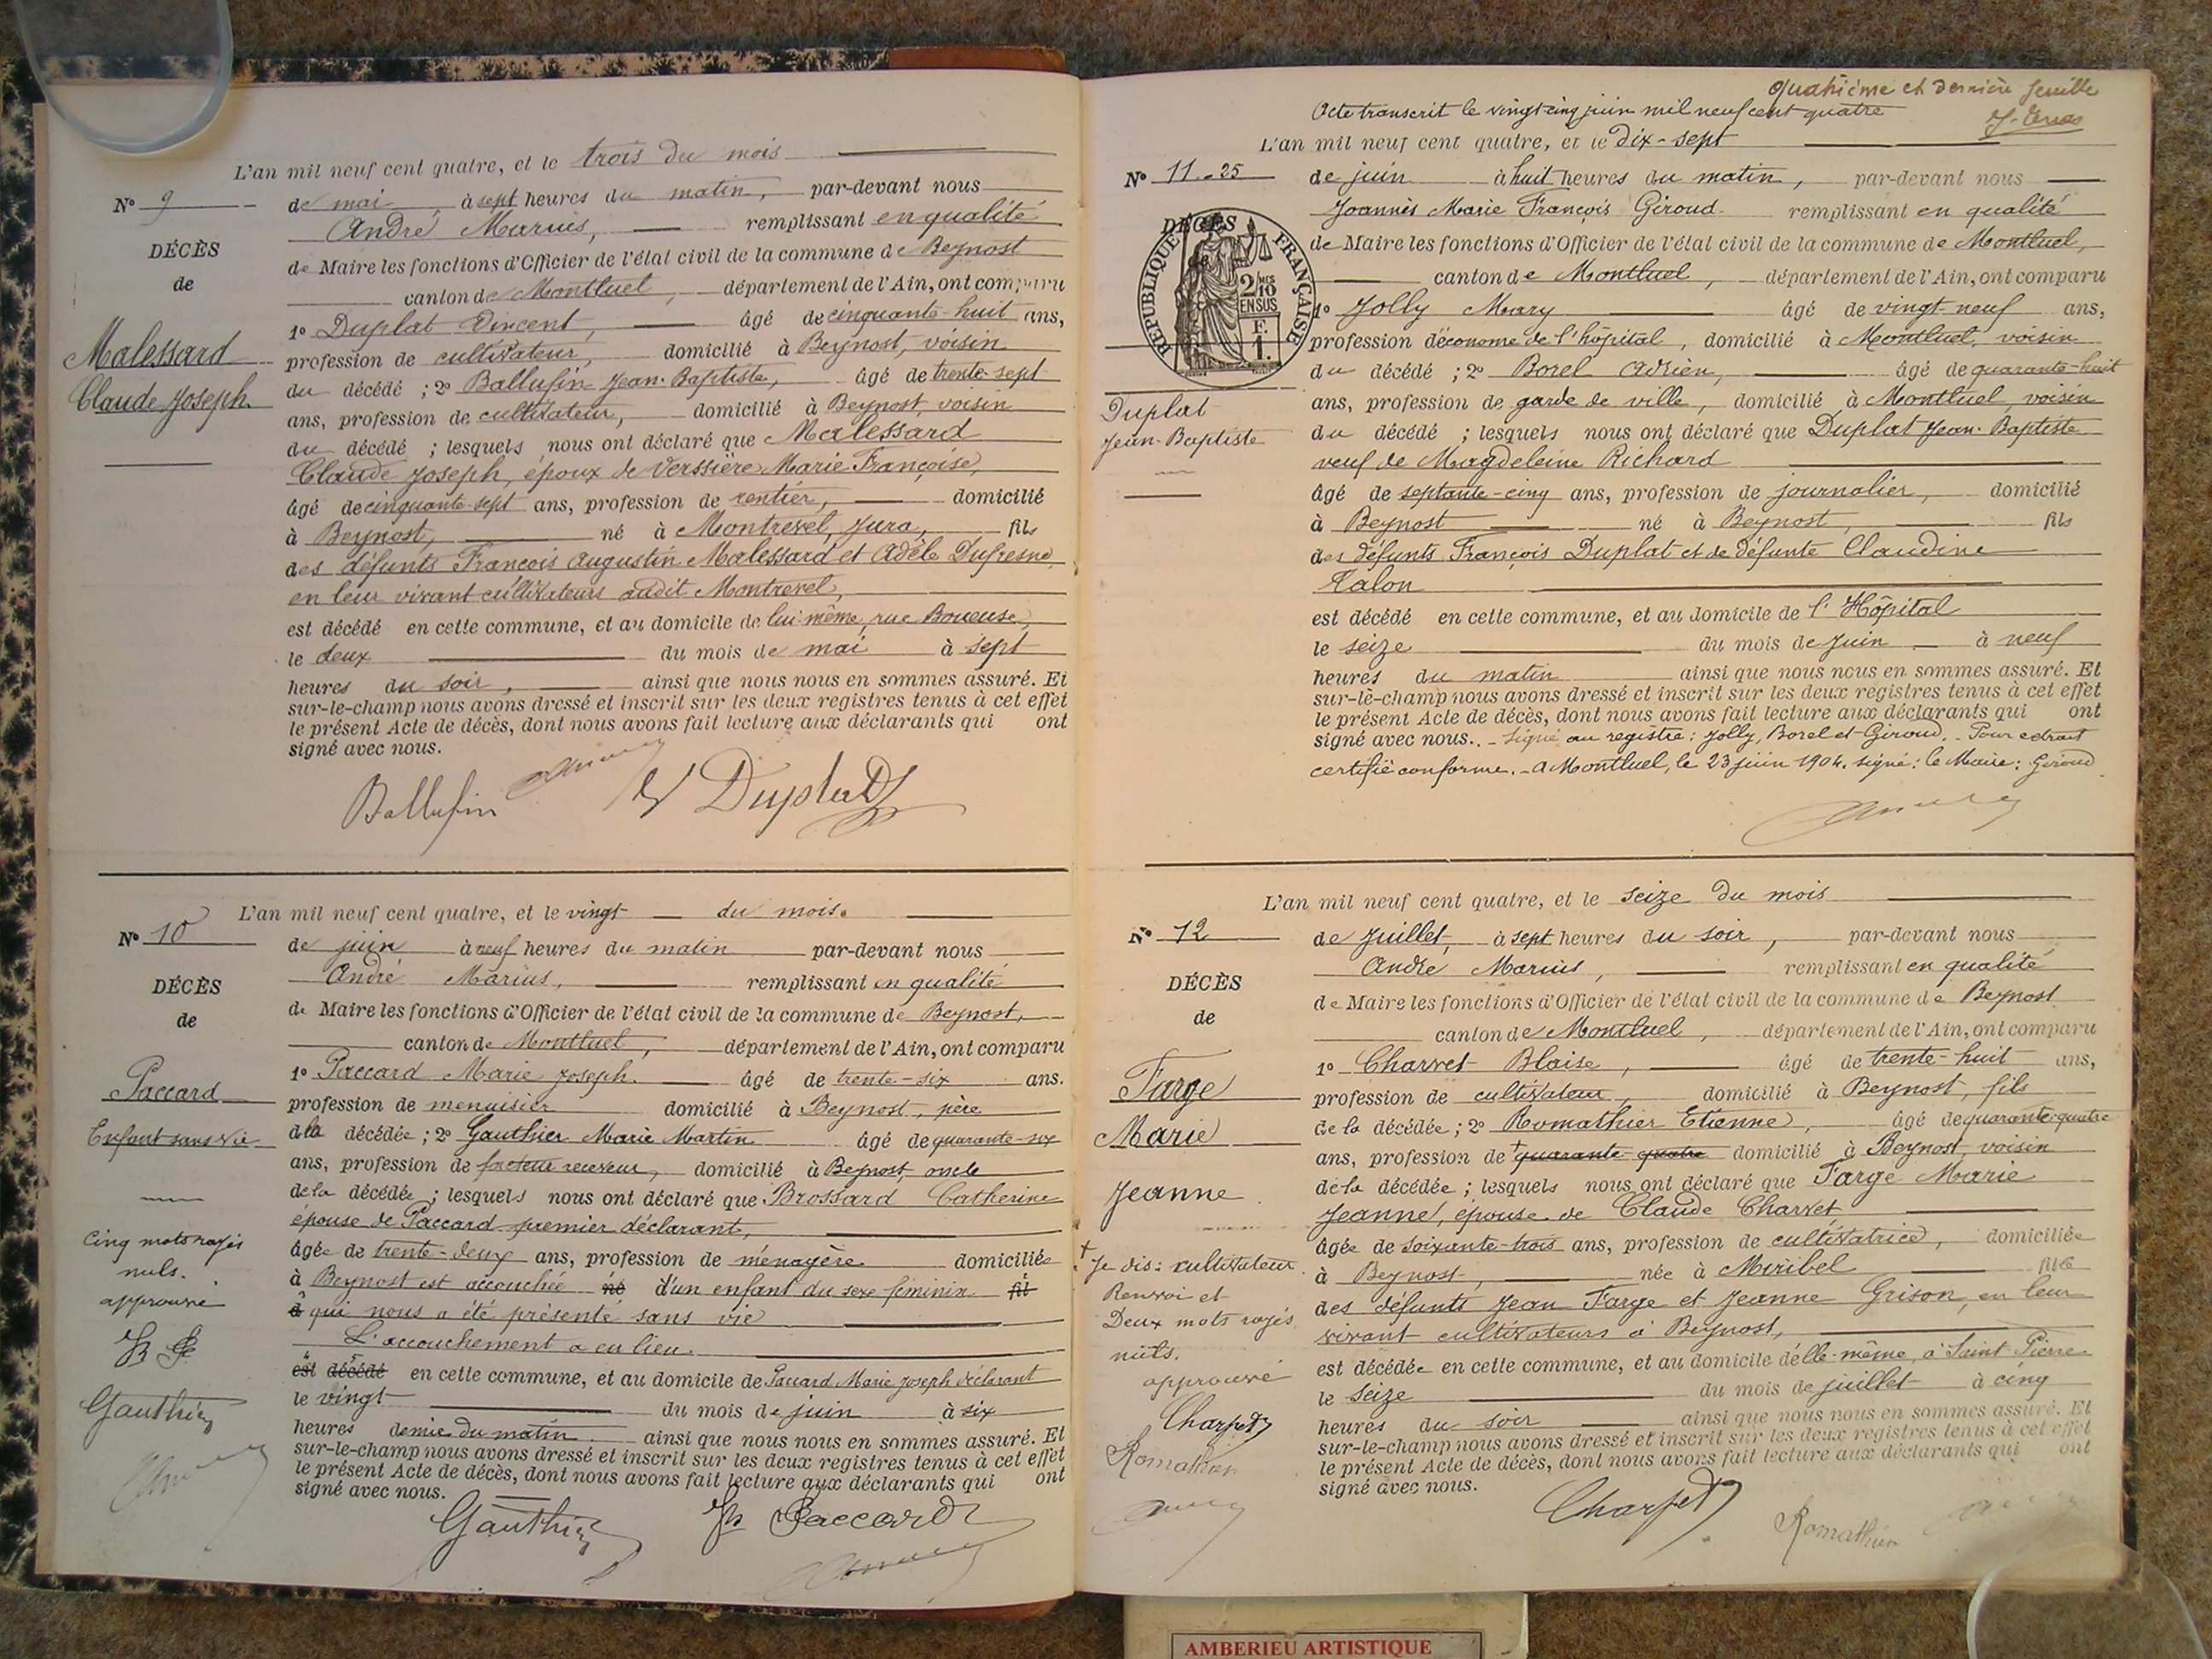 L'an mil neuf cent quatre, et le trois du mois
N° 9
de mai à sept heures du matin, par-devant nous
André Marius, remplissant en qualité
DÉCÈS
de Maire les fonctions d'Officier de l'état civil de la commune de Beynost
de
canton de Montluel, département de l'Ain, ont comparu
1° Duplat Vincent, âgé de cinquante-huit ans,
Malessard
profession de cultivateur, domicilié à Beynost, voisin
Claude Joseph
du décédé ; 2° Ballufin Jean-Baptiste, âgé de trente-sept
ans, profession de cultivateur, domicilié à Beynost, voisin
du décédé ; lesquels nous ont déclaré que Malessard
Claude Joseph, époux de Verssière Marie Françoise,
âgé de cinquante-sept ans, profession de rentier, domicilié
à Beynost, né à Montrevel, Jura, fils
des défunts François Augustin Malessard et Adèle Dufresne
en leur vivant cultivateurs audit Montrevel,
est décédé en cette commune, et au domicile de lui-même, rue Boueuse,
le deux du mois de mai à sept
heures du soir, ainsi que nous nous en sommes assuré. Et
sur-le-champ nous avons dressé et inscrit sur les deux registres tenus à cet effet
le présent Acte de décès, dont nous avons fait lecture aux déclarants qui ont
signé avec nous.
Ballufin V Duplat
L'an mil neuf cent quatre, et le vingt du mois.
N° 10
de juin à neuf heures du matin par-devant nous
André Marius, remplissant en qualité
DÉCÈS
de Maire les fonctions d'Officier de l'état civil de la commune de Beynost,
de
canton de Montluel, département de l'Ain, ont comparu
1° Paccard Marie Joseph. âgé de trente-six ans.
Paccard
profession de menuisier domicilié à Beynost, père
Enfant sans vie
de la décédée ; 2° Gauthier Marie Martin âgé de quarante-six
ans, profession de facteur receveur, domicilié à Beynost, oncle
de la décédée ; lesquels nous ont déclaré que Brossard Catherine
épouse de Paccard premier déclarant,
âgée de trente-deux ans, profession de ménagère domiciliée
à Beynost est accouchée né d'un enfant du sexe féminin fil
à qui nous a été présenté sans vie
L'accouchement a eu lieu.
est décédé en cette commune, et au domicile de Paccard Marie Joseph déclarant
le vingt du mois de juin à six
heures demie du matin ainsi que nous nous en sommes assuré. Et
sur-le-champ nous avons dressé et inscrit sur les deux registres tenus à cet effet
le présent Acte de décès, dont nous avons fait lecture aux déclarants qui ont
signé avec nous.
Cinq mots rayés
nuls.
approuvé
Gauthier
Gauthier Paccard
Quatrième et dernière feuille
Acte transcrit le vingt-cinq juin mil neuf cent quatre
L'an mil neuf cent quatre, et le dix-sept
N° 11.-25
de juin à huit heures du matin, par-devant nous
Joannès Marie François Giroud remplissant en qualité
DÉCÈS
RÉPUBLIQUE FRANÇAISE
2/10 EN SUS
F. 1.
de Maire les fonctions d'Officier de l'état civil de la commune de Montluel,
canton de Montluel, département de l'Ain, ont comparu
1° Jolly Mary âgé de vingt-neuf ans,
profession d'économe de l'hôpital, domicilié à Montluel, voisin
du décédé ; 2° Borel Adrien, âgé de quarante-huit
Duplat
Jean-Baptiste
ans, profession de garde de ville, domicilié à Montluel, voisin
du décédé ; lesquels nous ont déclaré que Duplat Jean-Baptiste
veuf de Magdeleine Richard
âgé de septante-cinq ans, profession de journalier, domicilié
à Beynost né à Beynost, fils
des défunts François Duplat et de défunte Claudine
Talon
est décédé en cette commune, et au domicile de l'Hôpital
le seize du mois de juin à neuf
heures du matin ainsi que nous nous en sommes assuré. Et
sur-le-champ nous avons dressé et inscrit sur les deux registres tenus à cet effet
le présent Acte de décès, dont nous avons fait lecture aux déclarants qui ont
signé avec nous. - Signé au registre : Jolly, Borel et Giroud. - Pour extrait
certifié conforme. - A Montluel, le 23 juin 1904. signé : le Maire : Giroud
L'an mil neuf cent quatre, et le seize du mois
N° 12
de Juillet, à sept heures du soir, par-devant nous
André Marius, remplissant en qualité
DÉCÈS
de Maire les fonctions d'Officier de l'état civil de la commune de Beynost
de
canton de Montluel, département de l'Ain, ont comparu
1° Charvet Blaise, âgé de trente-huit ans,
Farge
profession de cultivateur, domicilié à Beynost, fils
Marie
de la décédée ; 2° Romathier Etienne, âgé de quarante-quatre
ans, profession de + quarante-quatre domicilié à Beynost, voisin
Jeanne
de la décédée ; lesquels nous ont déclaré que Farge Marie
Jeanne, épouse de Claude Charvet
âgée de soixante-trois ans, profession de cultivatrice, domiciliée
à Beynost, née à Miribel fille
des défunts Jean Farge et Jeanne Grison, en leur
vivant cultivateurs à Beynost,
est décédée en cette commune, et au domicile d'elle-même, à Saint-Pierre
le seize du mois de juillet à cinq
heures du soir ainsi que nous nous en sommes assuré. Et
sur-le-champ nous avons dressé et inscrit sur les deux registres tenus à cet effet
le présent Acte de décès, dont nous avons fait lecture aux déclarants qui ont
signé avec nous.
+ Je dis : cultivateur.
Renvoi et
Deux mots rayés
nuls.
approuvé
Charvet
Romathier
Charvet Romathier
AMBERIEU ARTISTIQUE